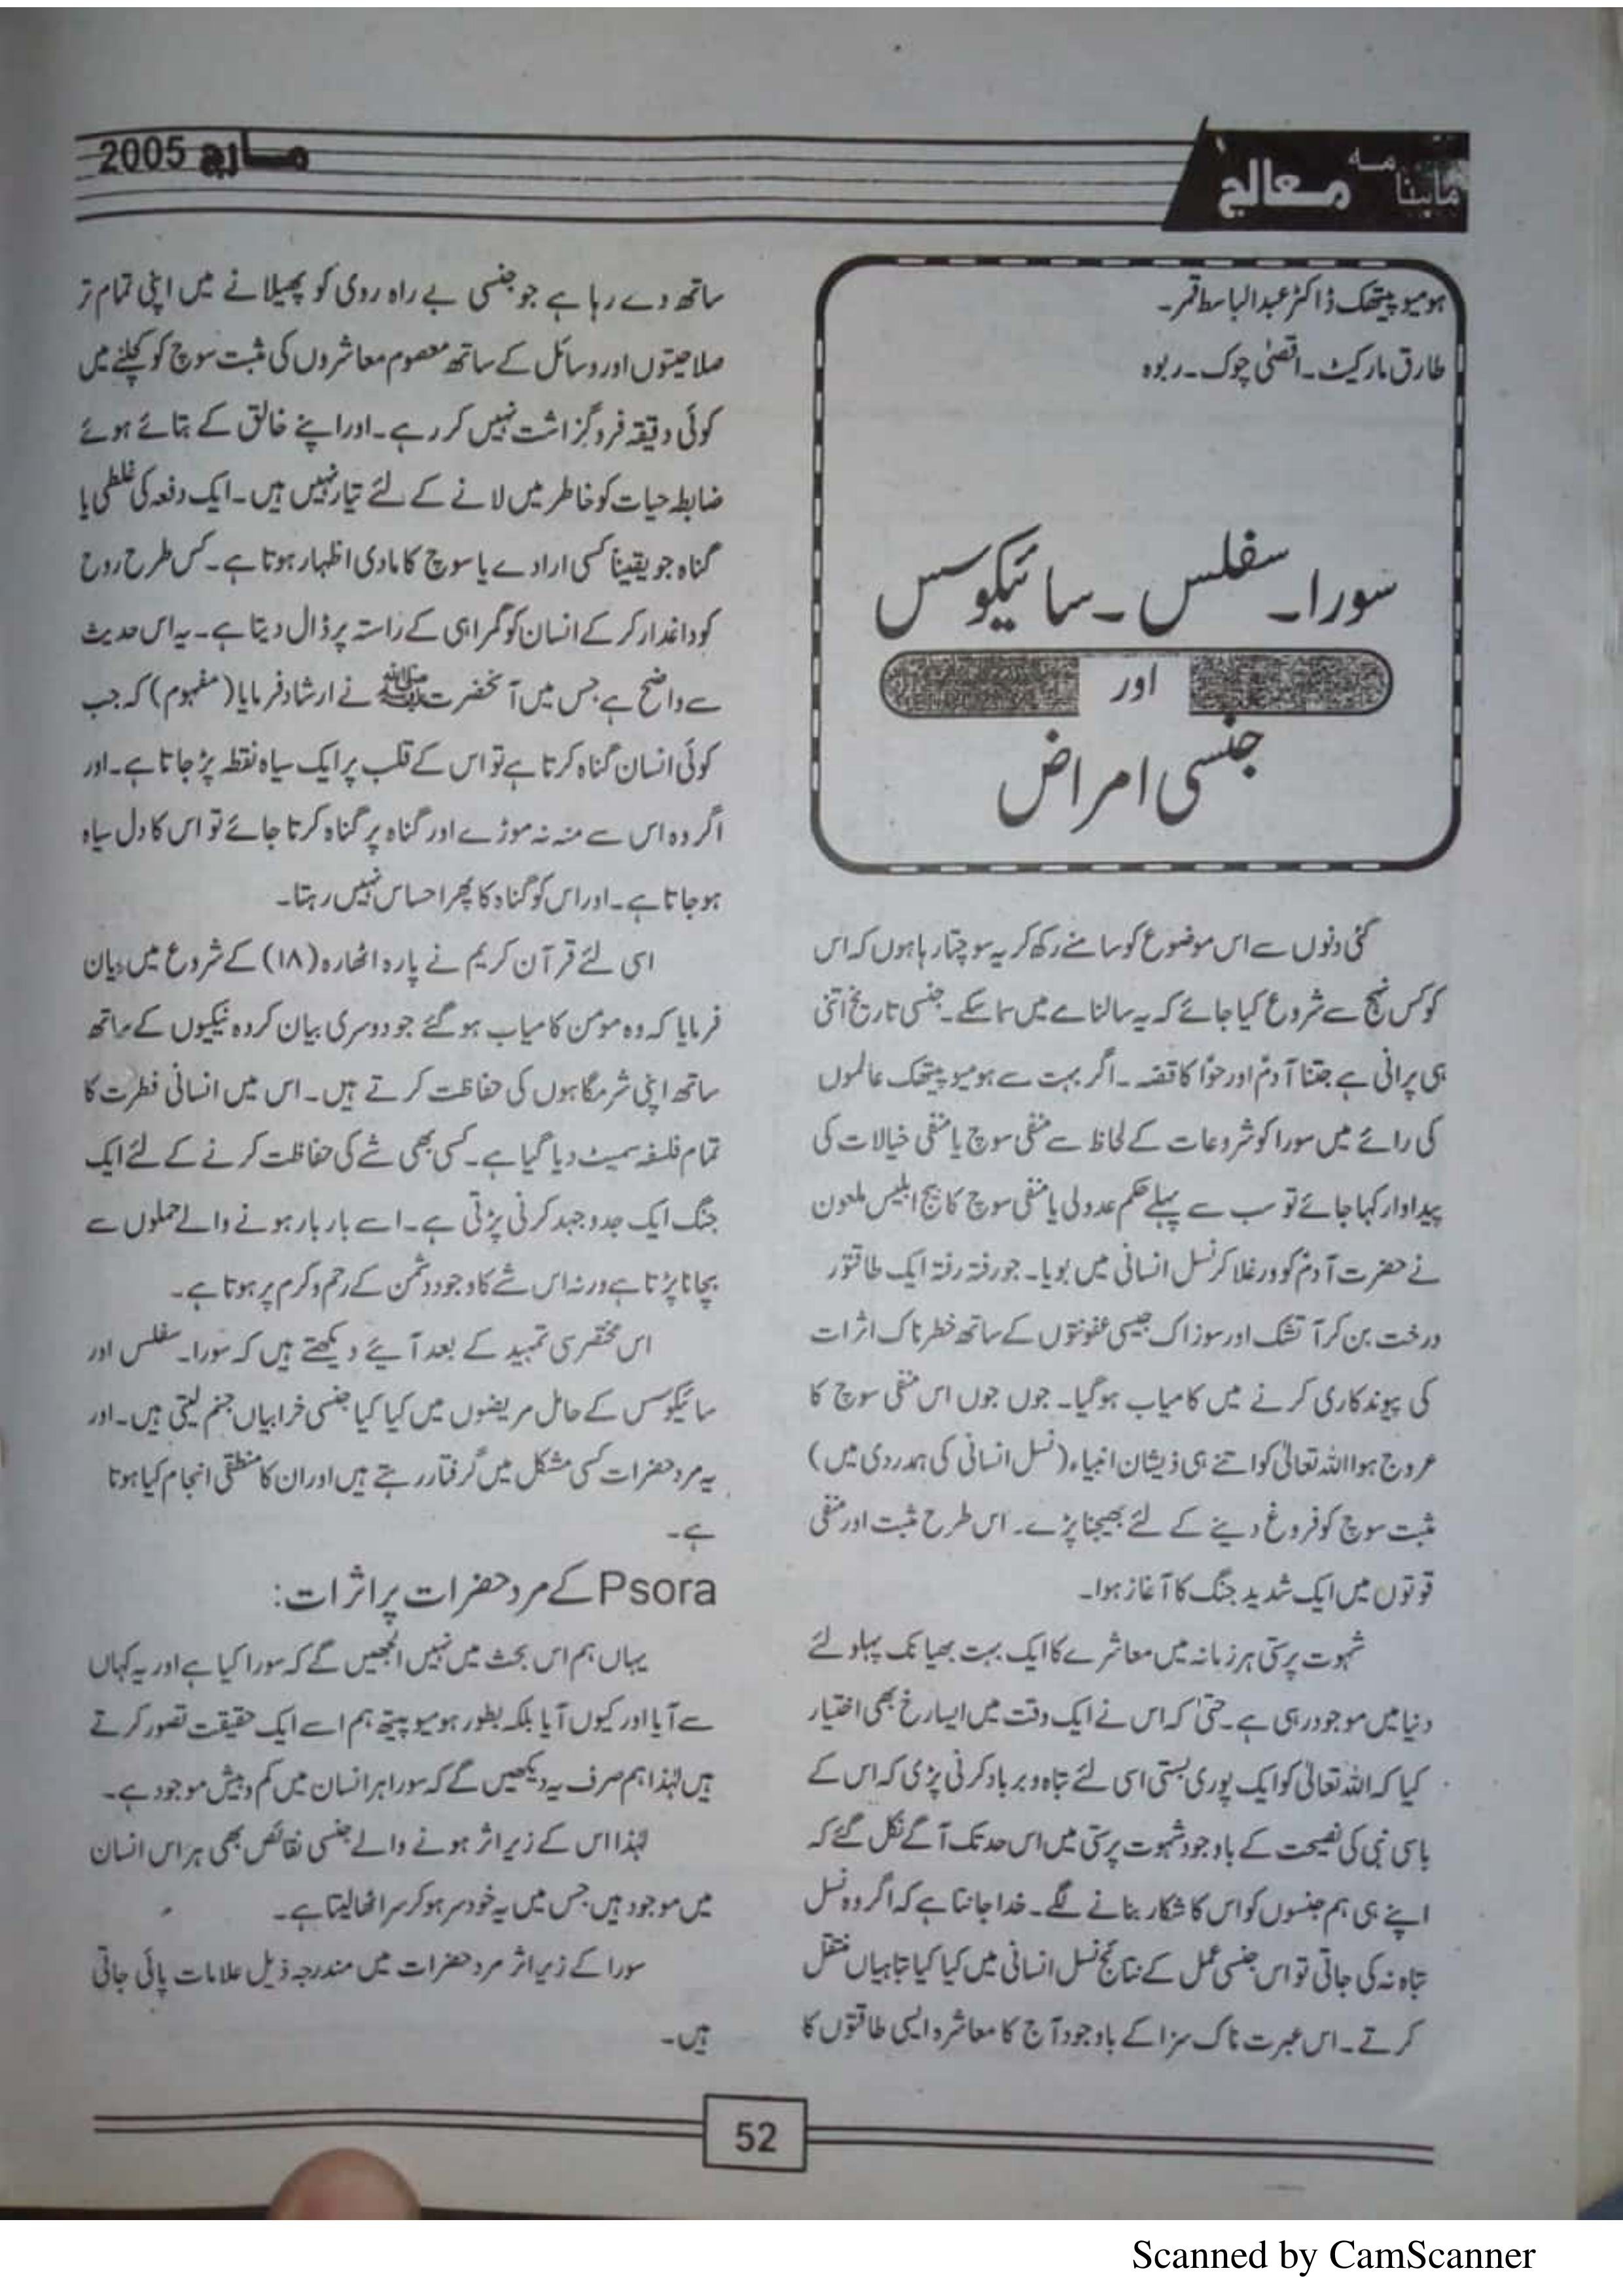 ماہنامہ معالج
مارچ 2005
ہومیو پیتھک ڈاکٹر عبدالباسط قمر۔
طارق مارکیٹ۔ اقصیٰ چوک۔ ربوہ
سورا۔ سفلس ۔ سائیکوسس
اور
جنسی امراض
کئی دنوں سے اس موضوع کو سامنے رکھ کر یہ سوچتا رہا ہوں کہ اس
کو کس نہج سے شروع کیا جائے کہ یہ سالنامے میں سما سکے۔ جنسی تاریخ اتنی
ہی پرانی ہے جتنا آدمؑ اور حواؑ کا قصہ۔ اگر بہت سے ہومیو پیتھک عالموں
کی رائے میں سورا کو شروعات کے لحاظ سے منفی سوچ یا منفی خیالات کی
پیداوار کہا جائے تو سب سے پہلے حکم عدولی یا منفی سوچ کا بیج ابلیس ملعون
نے حضرت آدمؑ کو ورغلا کر نسل انسانی میں بویا۔ جو رفتہ رفتہ ایک طاقتور
درخت بن کر آتشک اور سوزاک جیسی عفونتوں کے ساتھ خطرناک اثرات
کی پیوندکاری کرنے میں کامیاب ہو گیا۔ جوں جوں اس منفی سوچ کا
عروج ہوا اللہ تعالیٰ کو اتنے ہی ذیشان انبیاء (نسل انسانی کی ہمدردی میں)
مثبت سوچ کو فروغ دینے کے لئے بھیجنا پڑے۔ اس طرح مثبت اور منفی
قوتوں میں ایک شدید جنگ کا آغاز ہوا۔
شہوت پرستی ہر زمانہ میں معاشرے کا ایک بہت بھیانک پہلو لئے
دنیا میں موجود رہی ہے۔ حتیٰ کہ اس نے ایک وقت میں ایسا رخ بھی اختیار
کیا کہ اللہ تعالیٰ کو ایک پوری بستی اسی لئے تباہ و برباد کرنی پڑی کہ اس کے
باسی نبی کی نصیحت کے باوجود شہوت پرستی میں اس حد تک آگے نکل گئے کہ
اپنے ہی ہم جنسوں کو اس کا شکار بنانے لگے۔ خدا جانتا ہے کہ اگر وہ نسل
تباہ نہ کی جاتی تو اس جنسی عمل کے نتائج نسل انسانی میں کیا کیا تباہیاں منتقل
کرتے۔ اس عبرت ناک سزا کے باوجود آج کا معاشرہ ایسی طاقتوں کا
ساتھ دے رہا ہے جو جنسی بے راہ روی کو پھیلانے میں اپنی تمام تر
صلاحیتوں اور وسائل کے ساتھ معصوم معاشروں کی مثبت سوچ کو کچلنے میں
کوئی دقیقہ فروگزاشت نہیں کر رہے۔ اور اپنے خالق کے بتائے ہوئے
ضابطہ حیات کو خاطر میں لانے کے لئے تیار نہیں ہیں۔ ایک دفعہ کی غلطی یا
گناہ جو یقیناً کسی ارادے یا سوچ کا مادی اظہار ہوتا ہے۔ کس طرح روح
کو داغدار کر کے انسان کو گمراہی کے راستہ پر ڈال دیتا ہے۔ یہ اس حدیث
سے واضح ہے جس میں آنحضرت ﷺ نے ارشاد فرمایا (مفہوم) کہ جب
کوئی انسان گناہ کرتا ہے تو اس کے قلب پر ایک سیاہ نقطہ پڑ جاتا ہے۔ اور
اگر وہ اس سے منہ نہ موڑے اور گناہ پر گناہ کرتا جائے تو اس کا دل سیاہ
ہو جاتا ہے۔ اور اس کو گناہ کا پھر احساس نہیں رہتا۔
اسی لئے قرآن کریم نے پارہ اٹھارہ (۱۸) کے شروع میں بیان
فرمایا کہ وہ مومن کامیاب ہو گئے جو دوسری بیان کردہ نیکیوں کے ساتھ
ساتھ اپنی شرمگاہوں کی حفاظت کرتے ہیں۔ اس میں انسانی فطرت کا
تمام فلسفہ سمیٹ دیا گیا ہے۔ کسی بھی شے کی حفاظت کرنے کے لئے ایک
جنگ ایک جدوجہد کرنی پڑتی ہے۔ اسے بار بار ہونے والے حملوں سے
بچانا پڑتا ہے ورنہ اس شے کا وجود دشمن کے رحم و کرم پر ہوتا ہے۔
اس مختصر سی تمہید کے بعد آیئے دیکھتے ہیں کہ سورا۔ سفلس اور
سائیکوسس کے حامل مریضوں میں کیا کیا جنسی خرابیاں جنم لیتی ہیں۔ اور
یہ مرد حضرات کسی مشکل میں گرفتار رہتے ہیں اور ان کا منطقی انجام کیا ہوتا
ہے۔
Psora کے مرد حضرات پر اثرات:
یہاں ہم اس بحث میں نہیں الجھیں گے کہ سورا کیا ہے اور یہ کہاں
سے آیا اور کیوں آیا بلکہ بطور ہومیو پیتھ ہم اسے ایک حقیقت تصور کرتے
ہیں لہٰذا ہم صرف یہ دیکھیں گے کہ سورا ہر انسان میں کم و بیش موجود ہے۔
لہٰذا اس کے زیر اثر ہونے والے جنسی نقائص بھی ہر اس انسان
میں موجود ہیں جس میں یہ خود سر ہو کر سر اٹھا لیتا ہے۔
سورا کے زیر اثر مرد حضرات میں مندرجہ ذیل علامات پائی جاتی
ہیں۔
52
Scanned by CamScanner